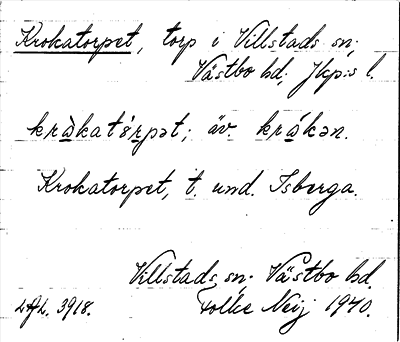 Krokatorpet, torp i Villstads sn;
Västbo hd; Jkp:s l.
kràkatórpət; äv. krókən.
Krokatorpet, t. und. Isberga.
Villstads sn. Västbo hd.
LAL. 3918. Folke Neij 1940.